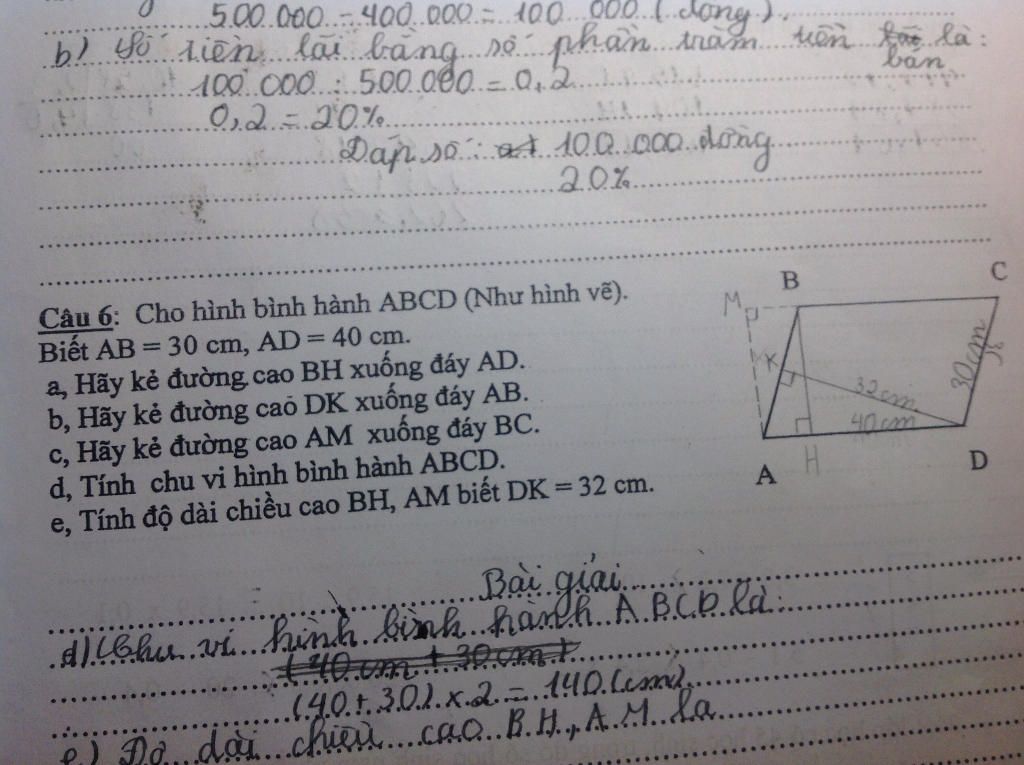 500.000 - 400.000 = 100.000 (đồng).
b) Số tiền lãi bằng số phần trăm tiền bán là:
100.000 : 500.000 = 0,2
0,2 = 20%
Đáp số: 100.000 đồng
20%
Câu 6: Cho hình bình hành ABCD (Như hình vẽ).
Biết AB = 30 cm, AD = 40 cm.
a, Hãy kẻ đường cao BH xuống đáy AD.
b, Hãy kẻ đường cao DK xuống đáy AB.
c, Hãy kẻ đường cao AM xuống đáy BC.
d, Tính chu vi hình bình hành ABCD.
e, Tính độ dài chiều cao BH, AM biết DK = 32 cm.
M B C
K 32 cm 30cm
40cm
A H D
Bài giải
d) Chu vi hình bình hành ABCD là:
(40 cm + 30 cm)
(40 + 30) x 2 = 140 (cm)
e) Độ dài chiều cao BH, AM là